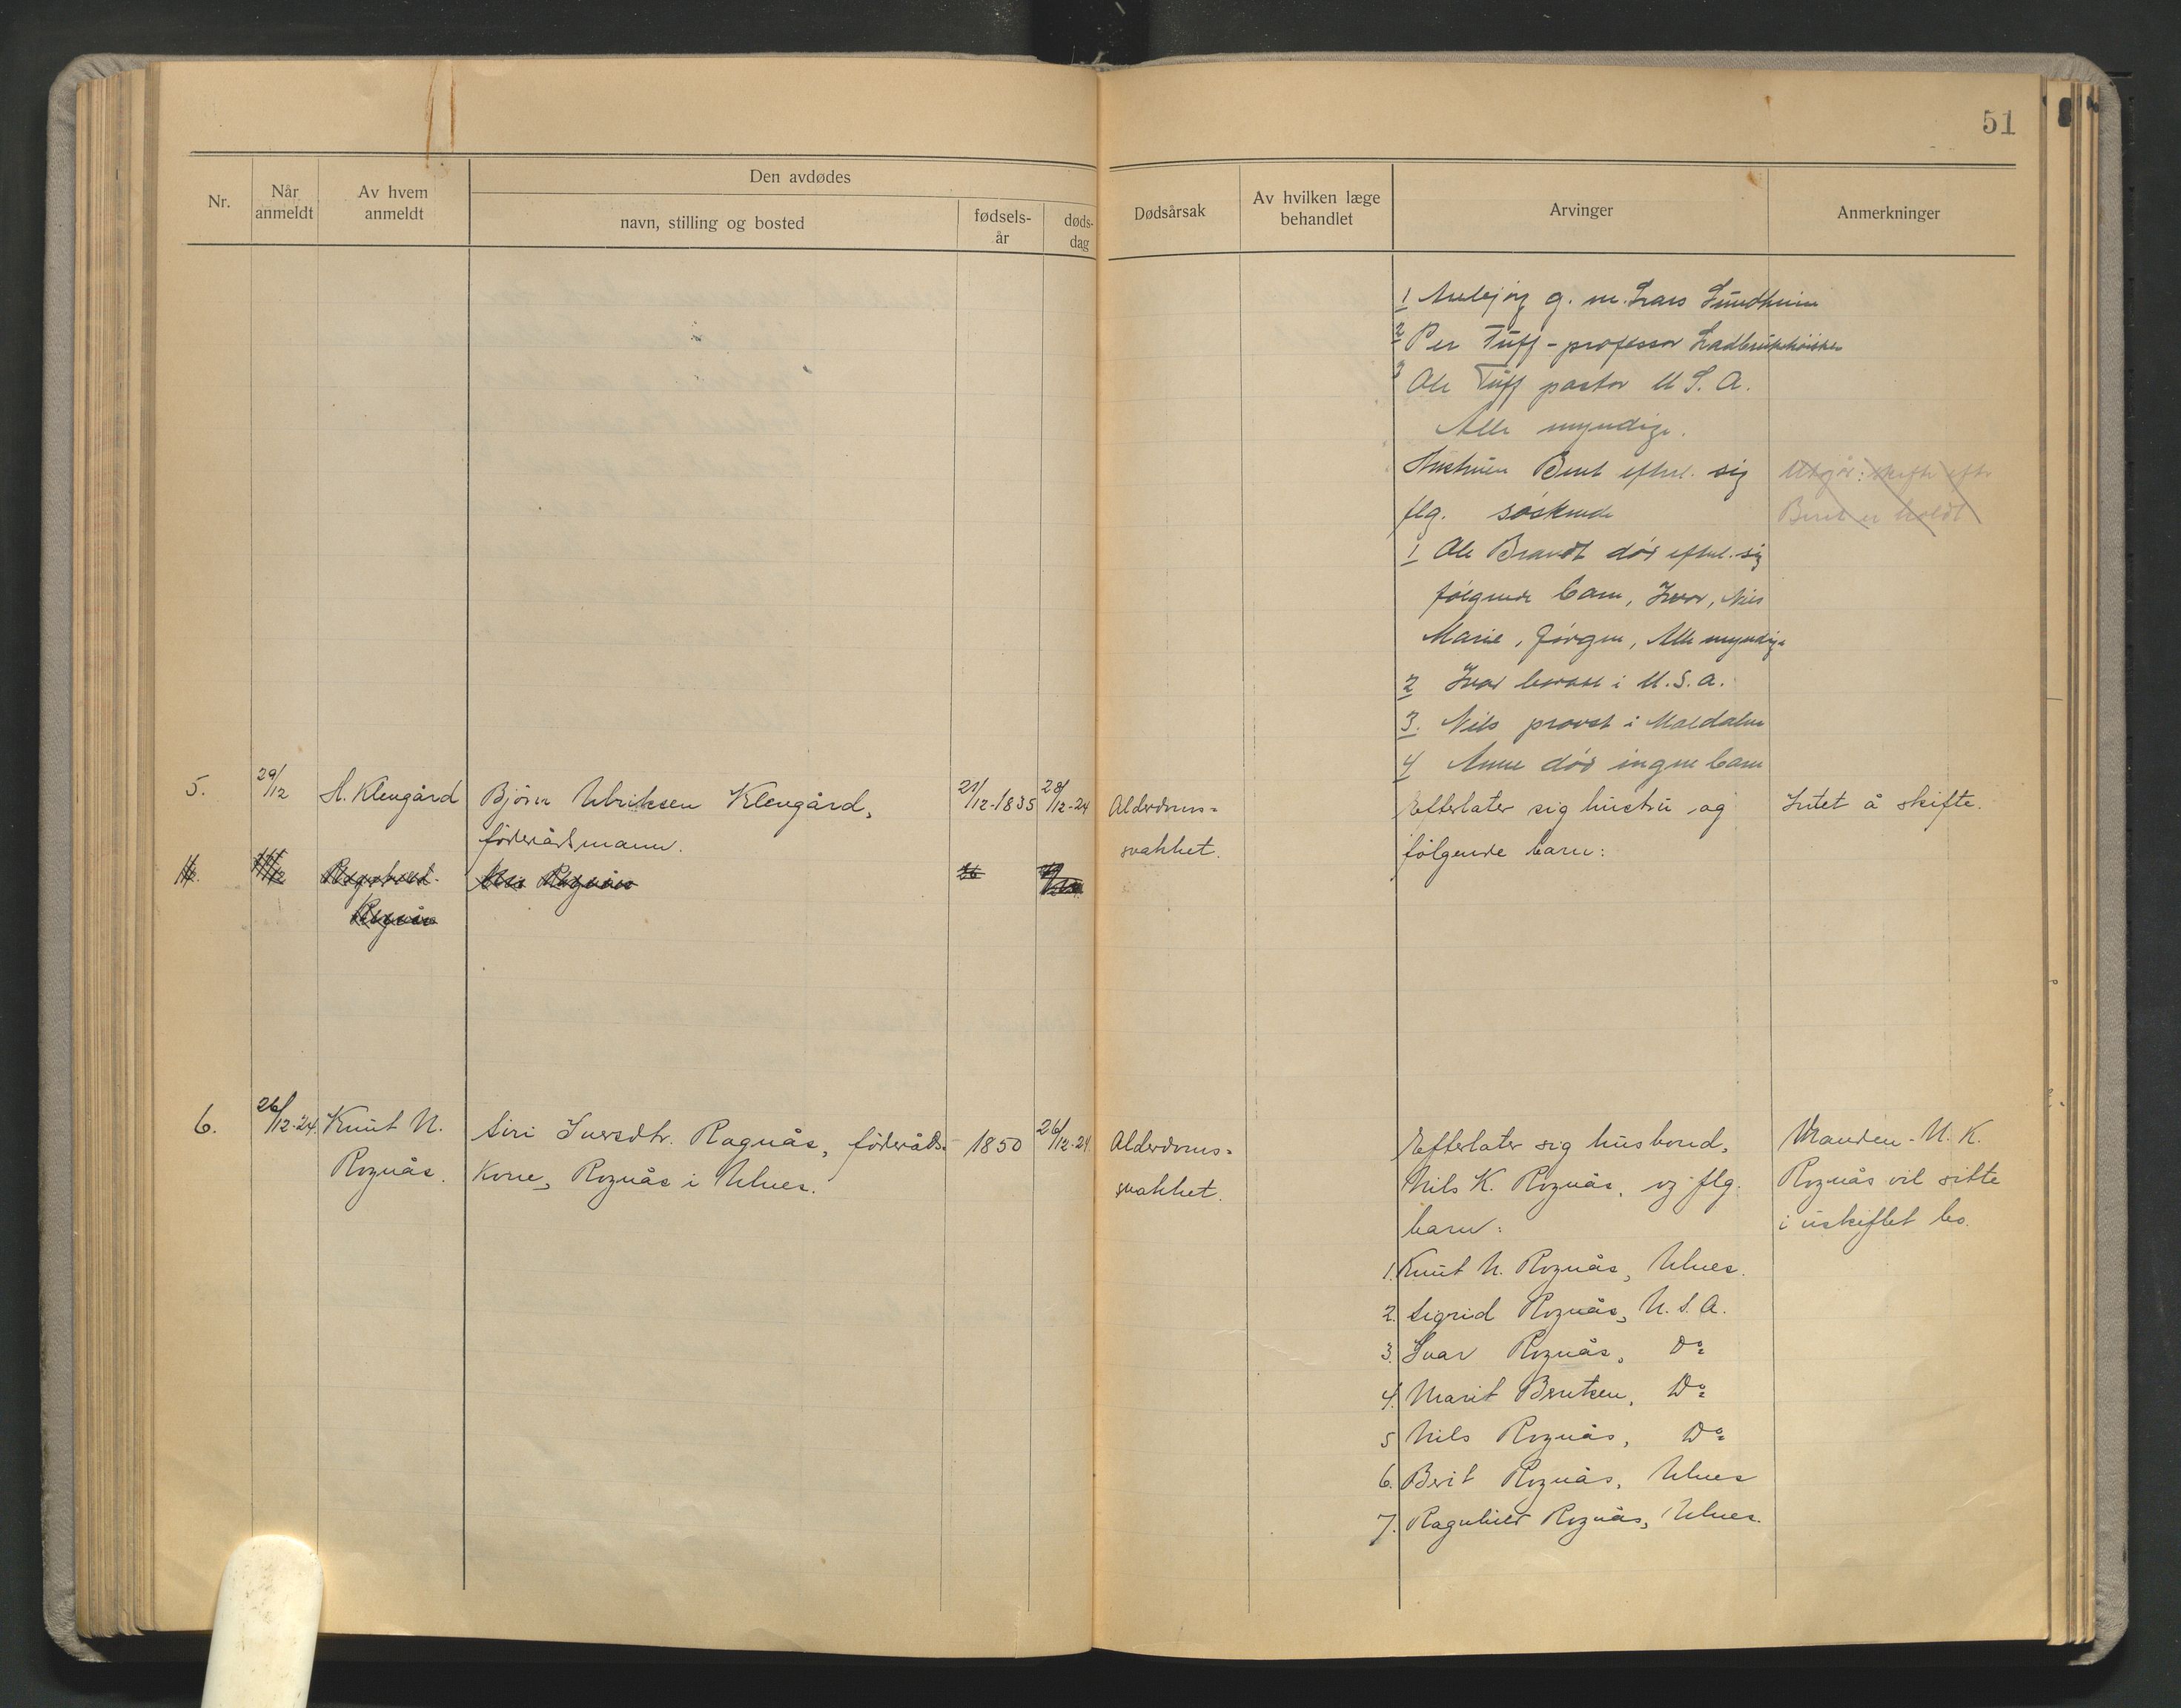 51
Nr.
Når anmeldt
Av hvem anmeldt
Den avdødes
navn, stilling og bosted
fødsels-år
døds-dag
Dødsårsak
Av hvilken læge behandlet
Arvinger
Anmerkninger
1 g. m. Lars Sundheim
2 Per Tuff - professor
3 Ole Tuff pastor U. S. A.
Alle myndige.
Hustruen Berit efterl. sig
flg. søskende
Utgår: skifte efter
Berit er holdt
1 Ole Brandt død efterl. sig
følgende barn, Ivar, Nils
Marie, Jörgen, Alle myndige
2 Ivar bosatt i U.S.A.
3. Nils provst i Maldalen
4 Anne død ingen barn
5. 29/12 H. Klengård Bjørn Ulriksen Klengård, 21/12-1835 28/12-24 Alderdoms= Efterlater sig hustru og Intet å skifte.
föderådsmann. svakhet. følgende barn:
Rognås
6. 26/12-24. Knut N. Siri Iversdtr. Rognås, föderåds- 1850 26/12-24 Alderdoms= Efterlater sig husbond, Manden - N. K.
Rognås. kone, Rognås i Ulnes. svakhet. Nils K. Rognås, og flg. Rognås vil sitte
barn: i uskiftet bo.
1. Knut N. Rognås, Ulnes.
2. Sigrid Rognås, U. S. A.
3. Ivar Rognås, Do
4. Marit Bentsen, Do
5 Nils Rognås, Do
6. Berit Rognås, Ulnes
7. Ragnhild Rognås, Ulnes.